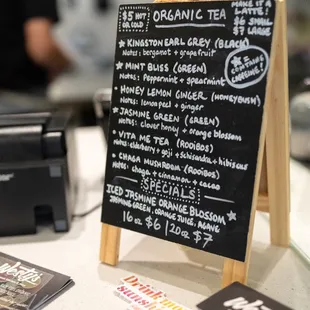 $5 HOT OR COLD
ORGANIC TEA
MAKE IT A
LATTE!
SMALL $6
LARGE $7
★ KINGSTON EARL GREY (BLACK)
Notes: bergamot + grapefruit
★ MINT BLISS (GREEN)
Notes: Peppermint + spearmint
★ = CONTAINS
CAFFEINE!
· HONEY LEMON GINGER (HONEYBUSH)
Notes: lemon peel + ginger
★ JASMINE GREEN (GREEN)
Notes: clover honey + orange blossom
· VITA ME TEA (ROOIBOS)
Notes: elderberry + goji + schisandra + hibiscus
· CHAGA MUSHROOM (ROOIBOS)
Notes: chaga + cinnamon + cacao
SPECIALS
ICED JASMINE ORANGE BLOSSOM ★
JASMINE GREEN, ORANGE JUICE, AGAVE
16oz $6 | 20oz $7
Drink